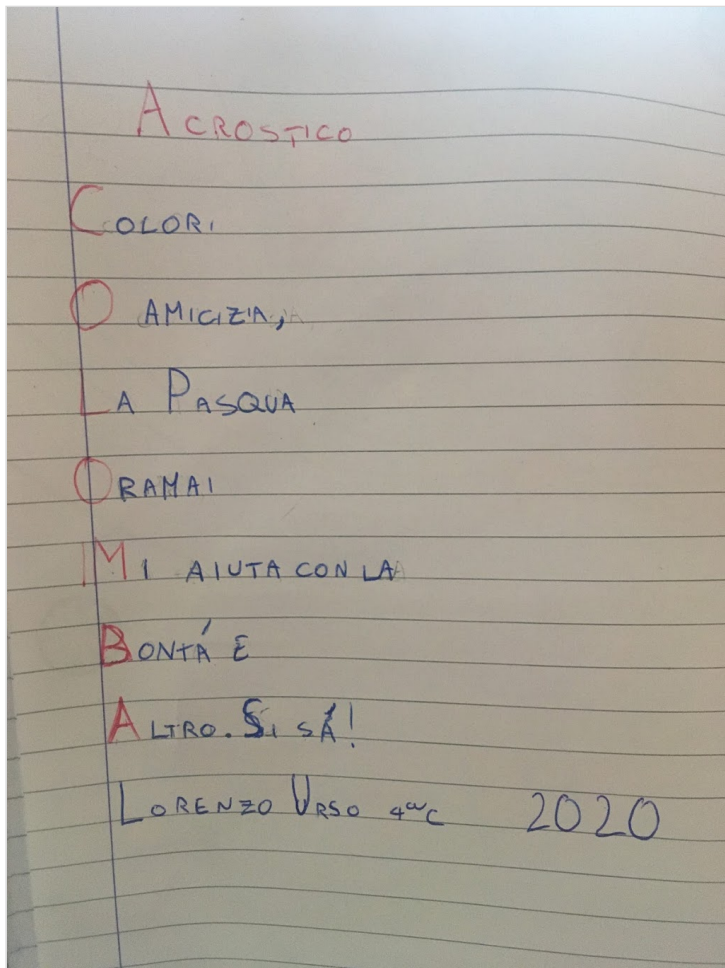 ACROSTICO
COLORI
O AMICIZIA,
LA PASQUA
ORAMAI
MI AIUTA CON LA
BONTÁ E
ALTRO. SI SÁ!
LORENZO URSO 4ᵃC 2020